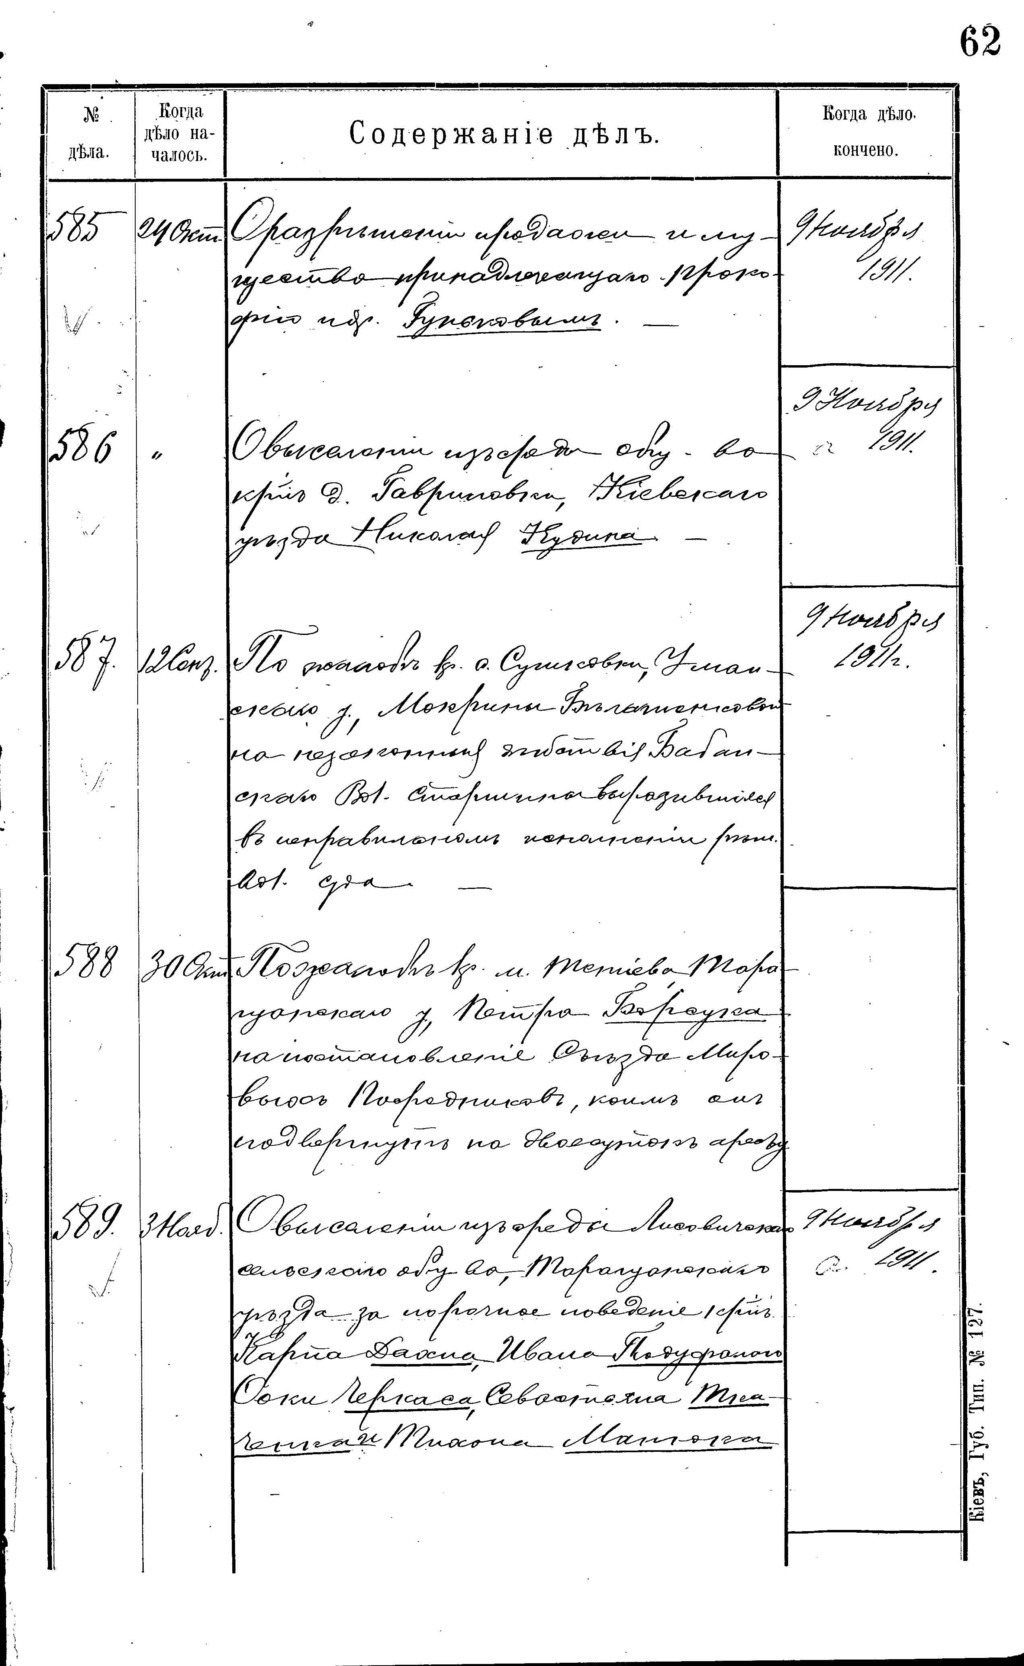 62
№ дѣла.
Когда дѣло началось.
Содержаніе дѣлъ.
Когда дѣло кончено.
585
24 Окт.
О разрѣшеніи продажи иму-
щества принадлежащаго Проко-
фію и др.
9 Ноября
1911.
586
"
О выселеніи изъ среды общ-ва
кр-нъ д. Гавриловки, Кіевскаго
уѣзда Николая Кудина. —
9 Ноября
1911.
587.
12 Сент.
По жалобѣ кр. с. Сушковки, Уман-
скаго у., Мокрины
на незаконныя дѣйствія Бабан-
скаго Вол. Старшины выразившіяся
въ неправильномъ исполненіи рѣш.
вол. суда —
9 Ноября
1911 г.
588
30 Окт.
По жалобѣ кр. м. Тетіева Тара-
щанскаго у, Петра Барсука
на постановленіе Съѣзда Миро-
выхъ Посредниковъ, коимъ онъ
подвергнутъ на двое сутокъ аресту
589.
3 Нояб.
О выселеніи изъ среды Лисовичскаго
сельскаго общ-ва, Таращанскаго
уѣзда за порочное поведеніе кр-нъ
Карпа Дахна, Ивана
Фоки Черкаса, Севастьяна Тка-
ченка и Тихона
9 Ноября
1911.
Кіевъ, Губ. Тип. № 127.